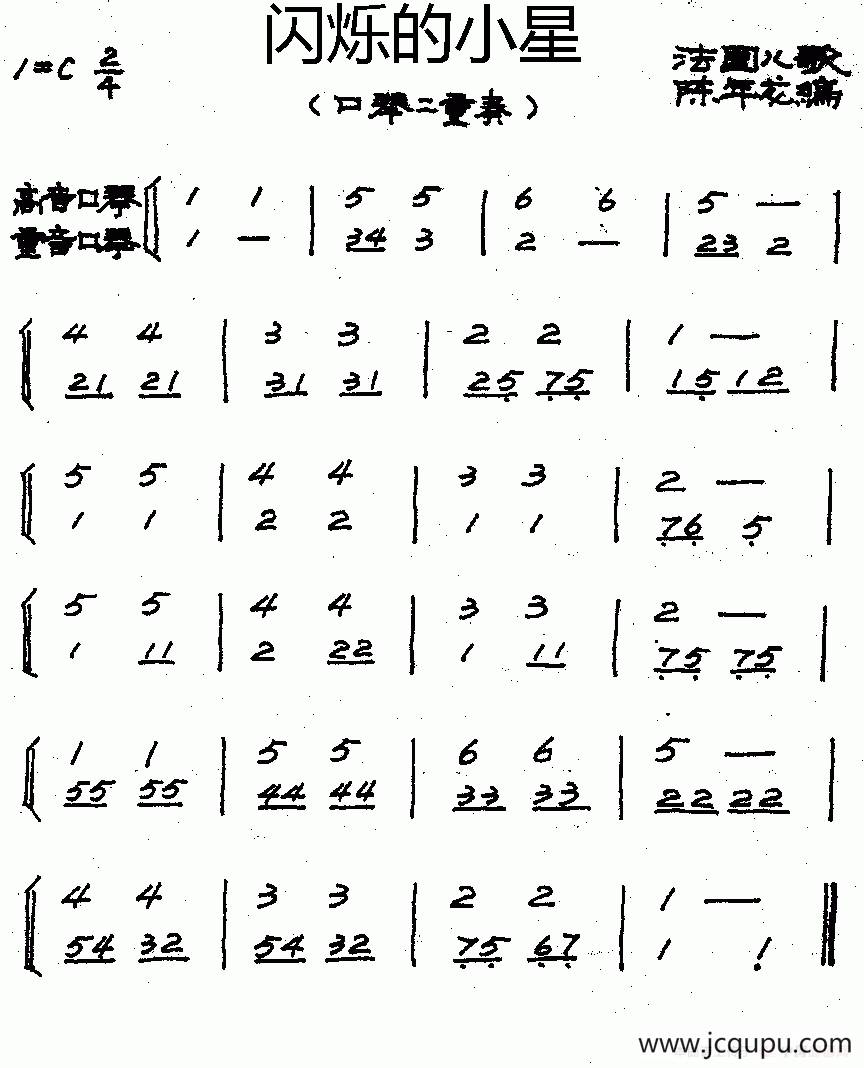 闪烁的小星
1=C 2/4
(口琴二重奏)
法国儿歌
陈年芳编
高音口琴 1 1 | 5 5 | 6 6 | 5 — |
重音口琴 1 — | 34 3 | 2 — | 23 2 |
4 4 | 3 3 | 2 2 | 1 — |
21 21 | 31 31 | 25̣ 7̣5̣ | 15̣ 12 |
5 5 | 4 4 | 3 3 | 2 — |
1 1 | 2 2 | 1 1 | 7̣6̣ 5̣ |
5 5 | 4 4 | 3 3 | 2 — |
1 11 | 2 22 | 1 11 | 7̣5̣ 7̣5̣ |
1 1 | 5 5 | 6 6 | 5 — |
55 55 | 44 44 | 33 33 | 22 22 |
4 4 | 3 3 | 2 2 | 1 — ‖
54 32 | 54 32 | 7̣5̣ 6̣7̣ | 1 1̣ ‖
www.jcqupu.com